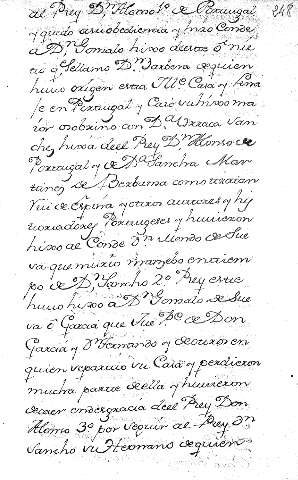 del Rey Dⁿ Alonso 1º de Portugal 248
y quedó a su obediencia y hizo Conde
a Dⁿ Gonzalo hixo de este
q llamo Dⁿ Barbera de quien
huvo origen esta Ilᵉ Casa y lina
je en Portugal y Casó su hixo ma
ior sobrino con Dᵃ Urraca San
chez hixa de el Rey Dⁿ Alonso de
Portugal y de Dᵃ Sancha Mar
tinez de Berbuma como tratan
Rui de Espina y otros autores y his
toriadores Portugueses y huvieron
hixo al Conde Dⁿ Mendo de Sue
va que murio mancebo en tiem
po de Dⁿ Sancho 2º Rey este
huvo hixo a Dⁿ Gonzalo de Sue
va é Garcia que fue Pᵉ de Don
Garcia y Dⁿ Fernando y
quien se partio su Casa y perdieron
mucha parte de ella y huvieron
de caer en desgracia de el Rey Don
Alonso 3º por seguir al Rey Dⁿ
Sancho su Hermano de quien